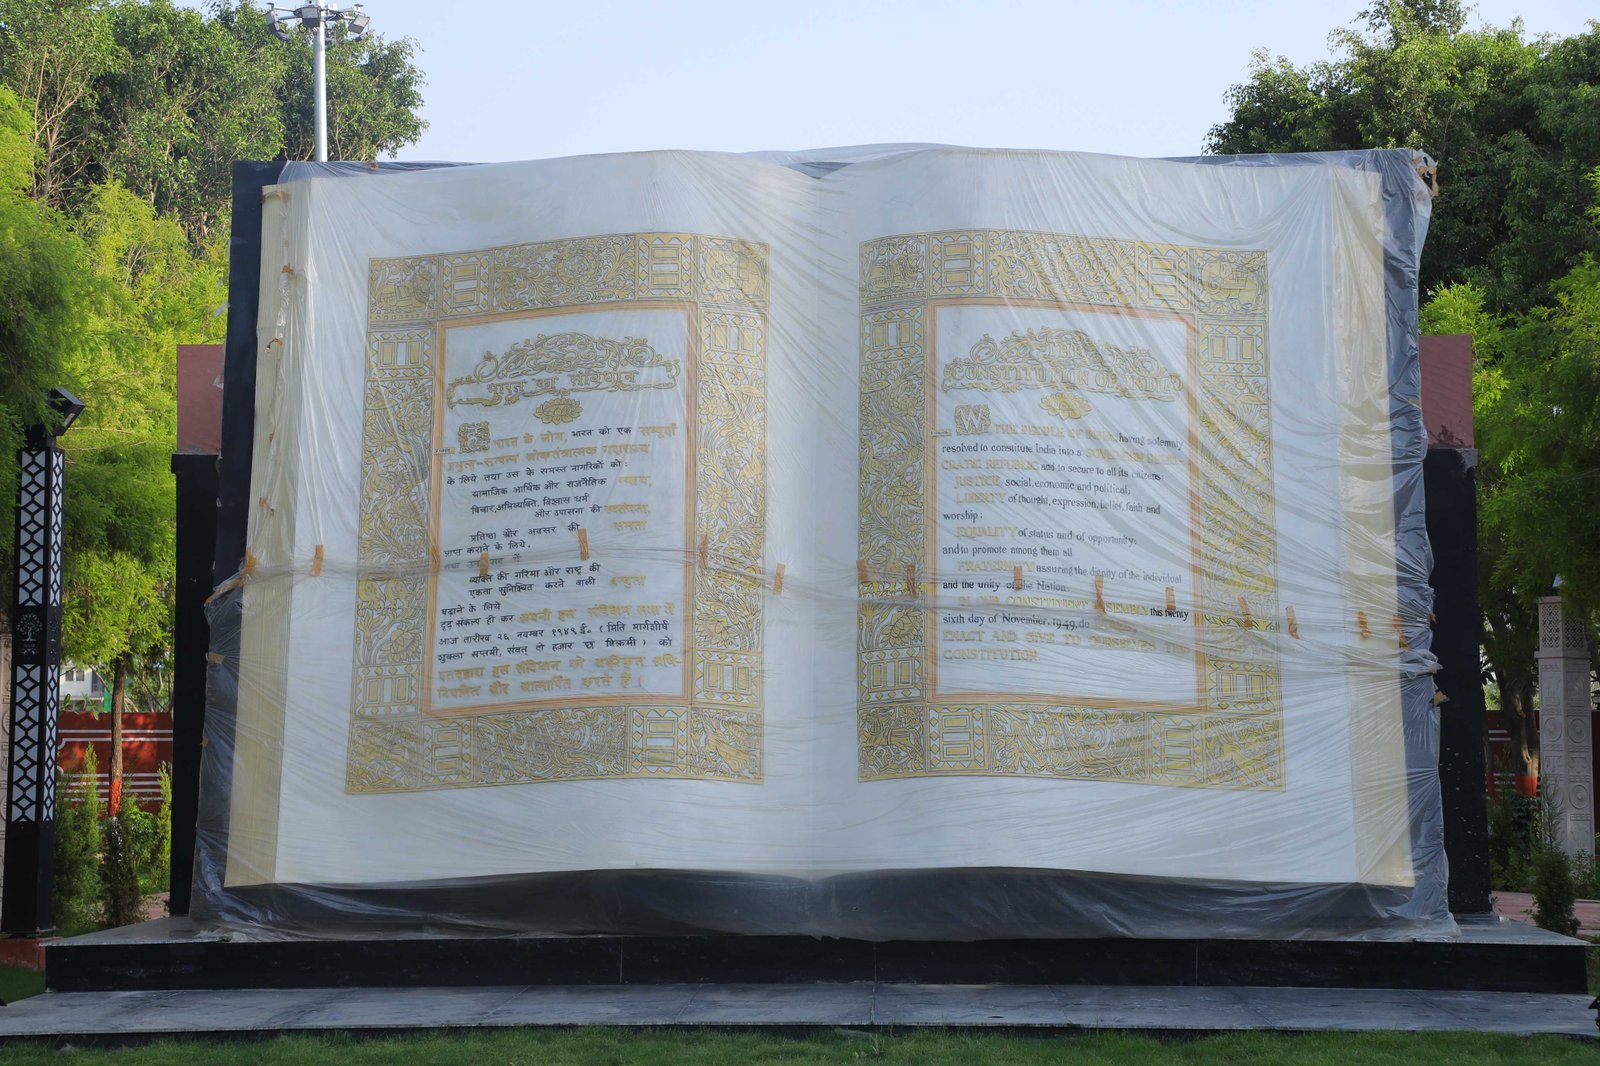 भारत का संविधान
हम भारत के लोग, भारत को एक सम्पूर्ण
प्रभुत्व-सम्पन्न लोकतंत्रात्मक गणराज्य
के लिये तथा उस के समस्त नागरिकों को:
सामाजिक आर्थिक और राजनैतिक न्याय,
विचार, अभिव्यक्ति, विश्वास धर्म
और उपासना की स्वतंत्रता,
प्रतिष्ठा और अवसर की समता
प्राप्त कराने के लिये,
तथा उन सब में
व्यक्ति की गरिमा और राष्ट्र की
एकता सुनिश्चित करने वाली बन्धुता
बढ़ाने के लिये
दृढ़ संकल्प हो कर अपनी इस संविधान सभा में
आज तारीख २६ नवम्बर १९४९ ई॰ (मिति मार्गशीर्ष
शुक्ला सप्तमी, संवत् दो हजार छ विक्रमी) को
एतद्द्वारा इस संविधान को अङ्गीकृत अधि-
नियमित और आत्मार्पित करते हैं।
THE
CONSTITUTION OF INDIA
WE THE PEOPLE OF INDIA, having solemnly
resolved to constitute India into a SOVEREIGN DEMO-
CRATIC REPUBLIC and to secure to all its citizens:
JUSTICE, social, economic and political;
LIBERTY of thought, expression, belief, faith and
worship;
EQUALITY of status and of opportunity;
and to promote among them all
FRATERNITY assuring the dignity of the individual
and the unity of the Nation;
IN OUR CONSTITUENT ASSEMBLY this twenty
sixth day of November, 1949, do
ENACT AND GIVE TO OURSELVES THIS
CONSTITUTION.